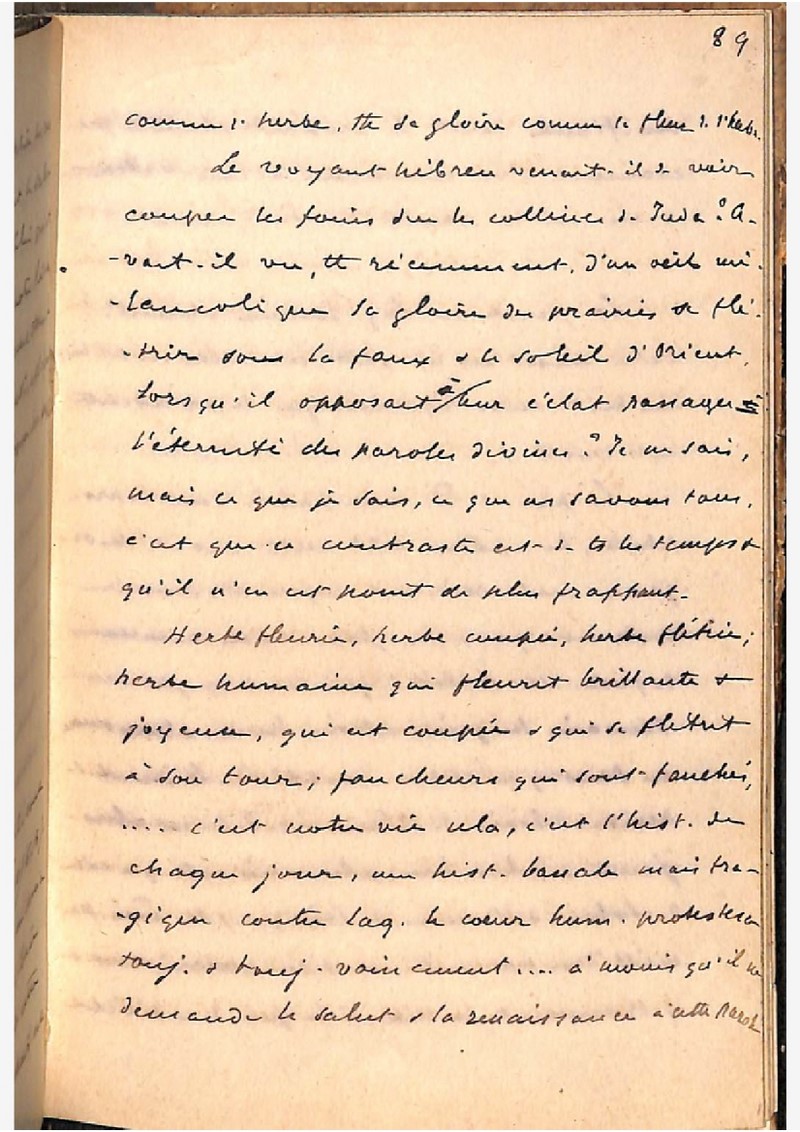 89
comme l'herbe, tte sa gloire comme la fleur de l'herbe.
Le voyant hébreu venait-il de voir
couper les foins sur les collines de Juda? A-
-vait-il vu, tt récemment, d'un oeil mé-
-lancolique la gloire des prairies se flé-
-trir sous la faux & le soleil d'Orient,
lorsqu'il opposait à leur éclat passager
l'éternité des paroles divines? Je ne sais,
mais ce que je sais, ce que ns savons tous,
c'est que ce contraste est de ts les temps &
qu'il n'en est point de plus frappant.
Herbe fleurie, herbe coupée, herbe flétrie;
herbe humaine qui fleurit brillante &
joyeuse, qui est coupée & qui se flétrit
à son tour; faucheurs qui sont fauchés,
.... c'est notre vie cela, c'est l'hist. de
chaque jour, une hist. banale mais tra-
-gique contre laq. le coeur hum. protestera
touj. & touj. vainement .... à moins qu'il ne
demande le salut & la renaissance à cette Parole